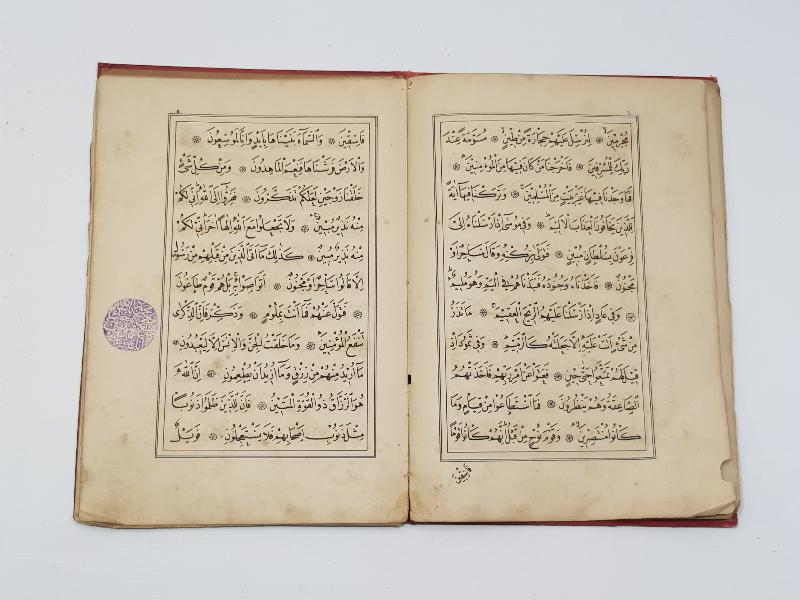 مُجْرِمِينَ ۝ لِنُرْسِلَ عَلَيْهِمْ حِجَارَةً مِنْ طِينٍ ۝ مُسَوَّمَةً عِنْدَ
رَبِّكَ لِلْمُسْرِفِينَ ۝ فَأَخْرَجْنَا مَنْ كَانَ فِيهَا مِنَ الْمُؤْمِنِينَ ۝
فَمَا وَجَدْنَا فِيهَا غَيْرَ بَيْتٍ مِنَ الْمُسْلِمِينَ ۝ وَتَرَكْنَا فِيهَا آيَةً
لِلَّذِينَ يَخَافُونَ الْعَذَابَ الْأَلِيمَ ۝ وَفِي مُوسَى إِذْ أَرْسَلْنَاهُ إِلَى
فِرْعَوْنَ بِسُلْطَانٍ مُبِينٍ ۝ فَتَوَلَّى بِرُكْنِهِ وَقَالَ سَاحِرٌ أَوْ
مَجْنُونٌ ۝ فَأَخَذْنَاهُ وَجُنُودَهُ فَنَبَذْنَاهُمْ فِي الْيَمِّ وَهُوَ مُلِيمٌ
۝ وَفِي عَادٍ إِذْ أَرْسَلْنَا عَلَيْهِمُ الرِّيحَ الْعَقِيمَ ۝ مَا تَذَرُ
مِنْ شَيْءٍ أَتَتْ عَلَيْهِ إِلَّا جَعَلَتْهُ كَالرَّمِيمِ ۝ وَفِي ثَمُودَ إِذْ
قِيلَ لَهُمْ تَمَتَّعُوا حَتَّى حِينٍ ۝ فَعَتَوْا عَنْ أَمْرِ رَبِّهِمْ فَأَخَذَتْهُمُ
الصَّاعِقَةُ وَهُمْ يَنْظُرُونَ ۝ فَمَا اسْتَطَاعُوا مِنْ قِيَامٍ وَمَا
كَانُوا مُنْتَصِرِينَ ۝ وَقَوْمَ نُوحٍ مِنْ قَبْلُ إِنَّهُمْ كَانُوا قَوْمًا
فَاسِقِينَ
فَاسِقِينَ ۝ وَالسَّمَاءَ بَنَيْنَاهَا بِأَيْدٍ وَإِنَّا لَمُوسِعُونَ
وَالْأَرْضَ فَرَشْنَاهَا فَنِعْمَ الْمَاهِدُونَ ۝ وَمِنْ كُلِّ شَيْءٍ
خَلَقْنَا زَوْجَيْنِ لَعَلَّكُمْ تَذَكَّرُونَ ۝ فَفِرُّوا إِلَى اللَّهِ إِنِّي لَكُمْ
مِنْهُ نَذِيرٌ مُبِينٌ ۝ وَلَا تَجْعَلُوا مَعَ اللَّهِ إِلَهًا آخَرَ إِنِّي لَكُمْ
مِنْهُ نَذِيرٌ مُبِينٌ ۝ كَذَلِكَ مَا أَتَى الَّذِينَ مِنْ قَبْلِهِمْ مِنْ رَسُولٍ
إِلَّا قَالُوا سَاحِرٌ أَوْ مَجْنُونٌ ۝ أَتَوَاصَوْا بِهِ بَلْ هُمْ قَوْمٌ طَاغُونَ
۝ فَتَوَلَّ عَنْهُمْ فَمَا أَنْتَ بِمَلُومٍ ۝ وَذَكِّرْ فَإِنَّ الذِّكْرَى
تَنْفَعُ الْمُؤْمِنِينَ ۝ وَمَا خَلَقْتُ الْجِنَّ وَالْإِنْسَ إِلَّا لِيَعْبُدُونِ ۝
مَا أُرِيدُ مِنْهُمْ مِنْ رِزْقٍ وَمَا أُرِيدُ أَنْ يُطْعِمُونِ ۝ إِنَّ اللَّهَ
هُوَ الرَّزَّاقُ ذُو الْقُوَّةِ الْمَتِينُ ۝ فَإِنَّ لِلَّذِينَ ظَلَمُوا ذَنُوبًا
مِثْلَ ذَنُوبِ أَصْحَابِهِمْ فَلَا يَسْتَعْجِلُونِ ۝ فَوَيْلٌ